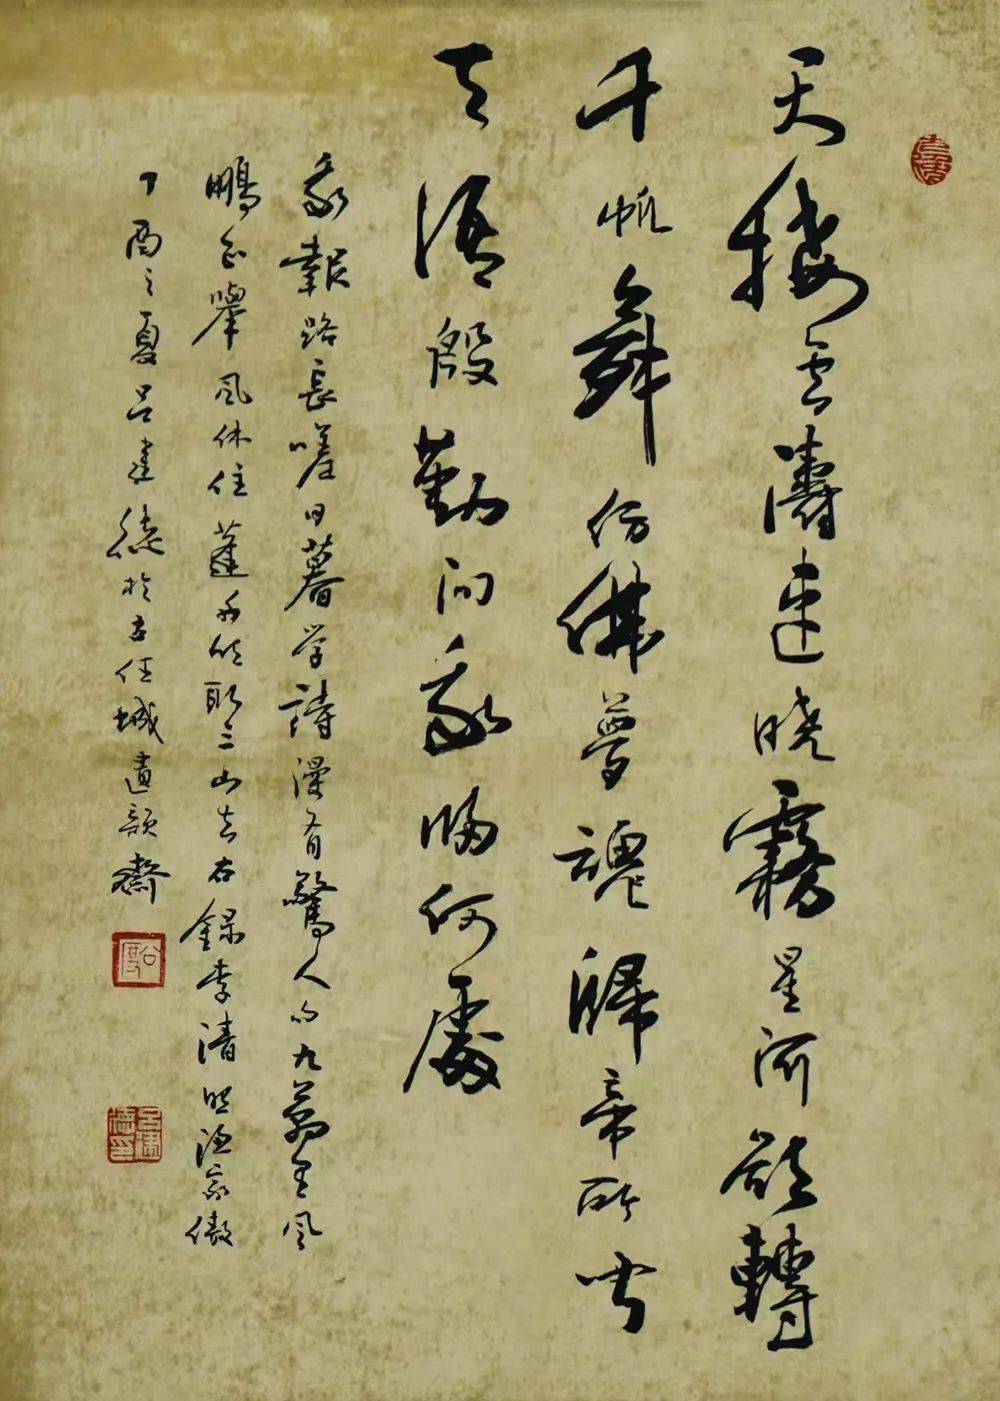 天接云濤連晓霧星河欲轉
千帆舞仿佛夢魂歸帝所聞
天語殷勤问我歸何處
我報路長嗟日暮学詩漫有驚人句九萬里風
鵬正舉風休住蓬舟吹取三山去右錄李清照漁家傲
丁酉之夏吕建德於古任城韻齋
吕建德印